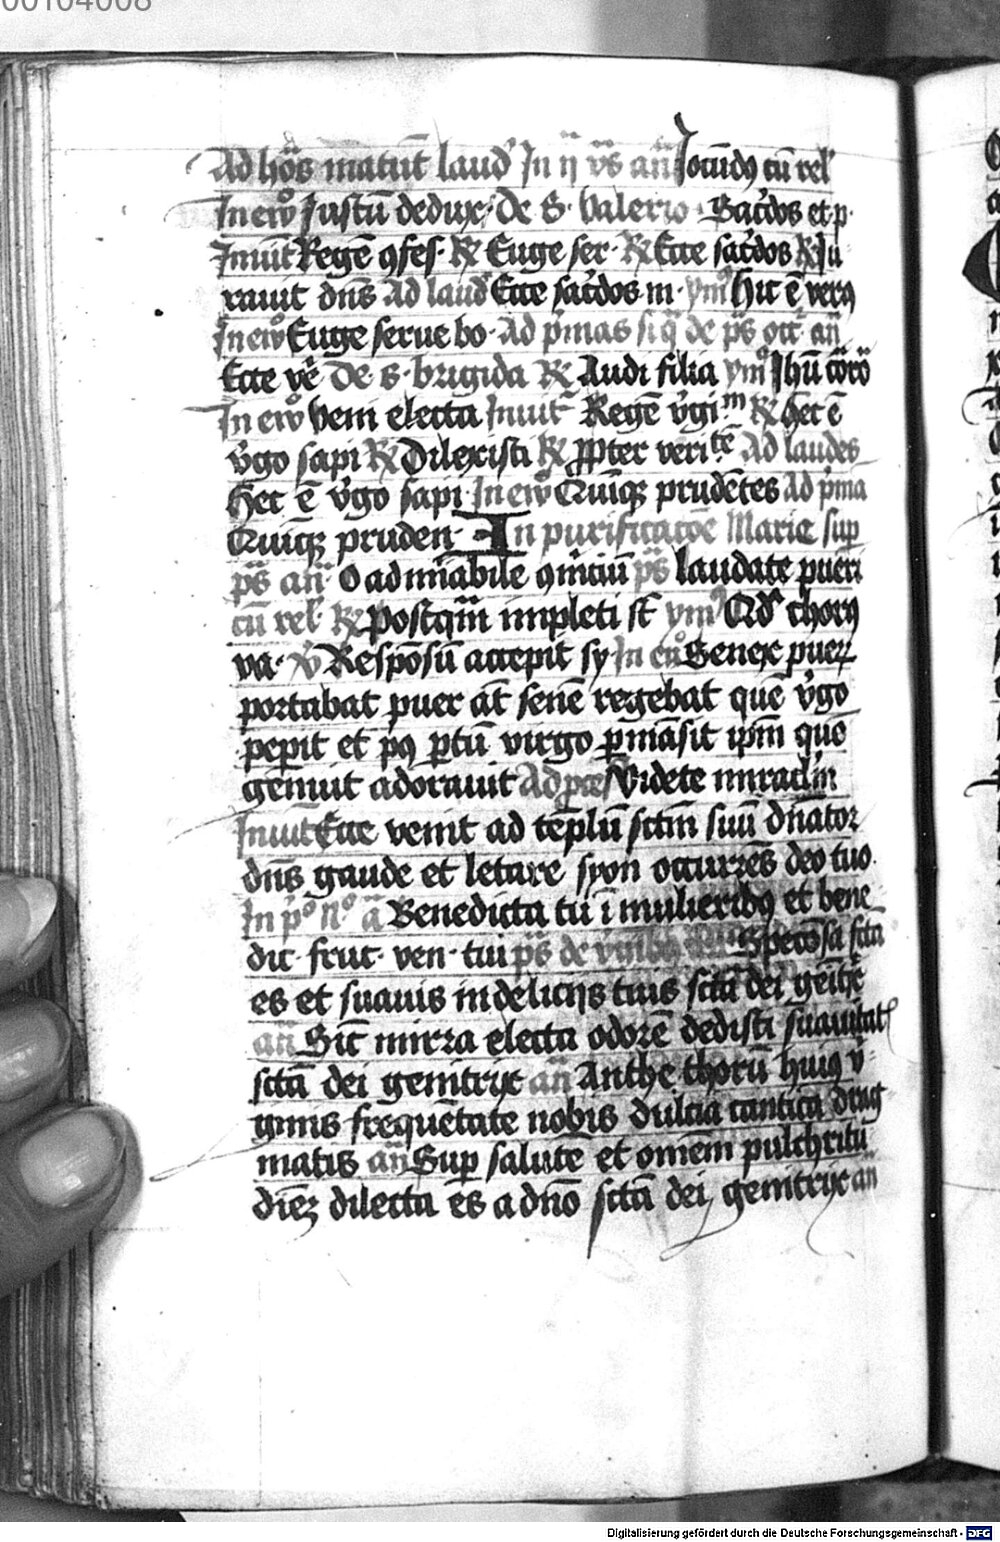 00104008
Ad hōs matut̄ laud' In ij v̄s an̄ Jocūdꝯ cū rel'
In ew̄ Justū dedux̱· De S· Valerio Sac̄dos et p·
Inuit̄ Regē ꝯfes· ℟ Euge ser· ℟ Ecce sac̄dos ℟ Ju
rauit dn̄s Ad laud' Ecce sac̄dos m· ym̄ hic ē verꝯ
In ew̄ Euge serue bo· Ad p̄mas si q̄ de p̄s occ̄ an̄
Ecce ve᷒ De· s· brigida ℟ Audi filia ym̄ Jhū corō
In ew̄ Veni electa Inuit̄ Regē v̄giᵐ ℟ hec ē
v̄go sapi ℟ Dilexisti ℟ Ꝓpter veritē Ad laudes
hec ē v̄go sapi In ew̄ Quīqꝫ prudētes Ad p̄mā
Quīqꝫ pruden· In purificatōe Marie sup
p̄s an̄· O admirabile ꝯmciū p̄s laudate pueri
cū rel' ℟ Postq̄m impleti st̄ ym̄ Qd' chorꝯ
va· ℣ Respōsū accepit sy· In eu᷒ Senex pueꝝ
portabat puer āt senē regebat quē v̄go
pepit et pꝯ ꝑtū virgo ꝑmāsit ip̄m quē
genuit adorauit Videte mirac'm
Inuit̄ Ecce venit ad tēplū sctm̄ suū dn̄ator
dn̄s gaude et letare syon occurrēs deo tuo·
In pᵒ nᵒ ā Benedicta tū ī mulieribꝯ et bene
dic· fruc· ven· tui p̄s de Specōsa sctā
es et suauis in delicijs tuis sctā dei genitx̄
an̄ Sic̄ mirra electa odorē dedisti suauitat'
sctā dei genitrix an̄ Anthe thorū huiꝯ v̄·
ginis frequētate nobis dulcia cantica drag
matis an̄ Sup salutē et omēm pulchritu
diēꝫ dilecta es a dn̄o sctā dei genitrix an̄
Digitalisierung gefördert durch die Deutsche Forschungsgemeinschaft - DFG